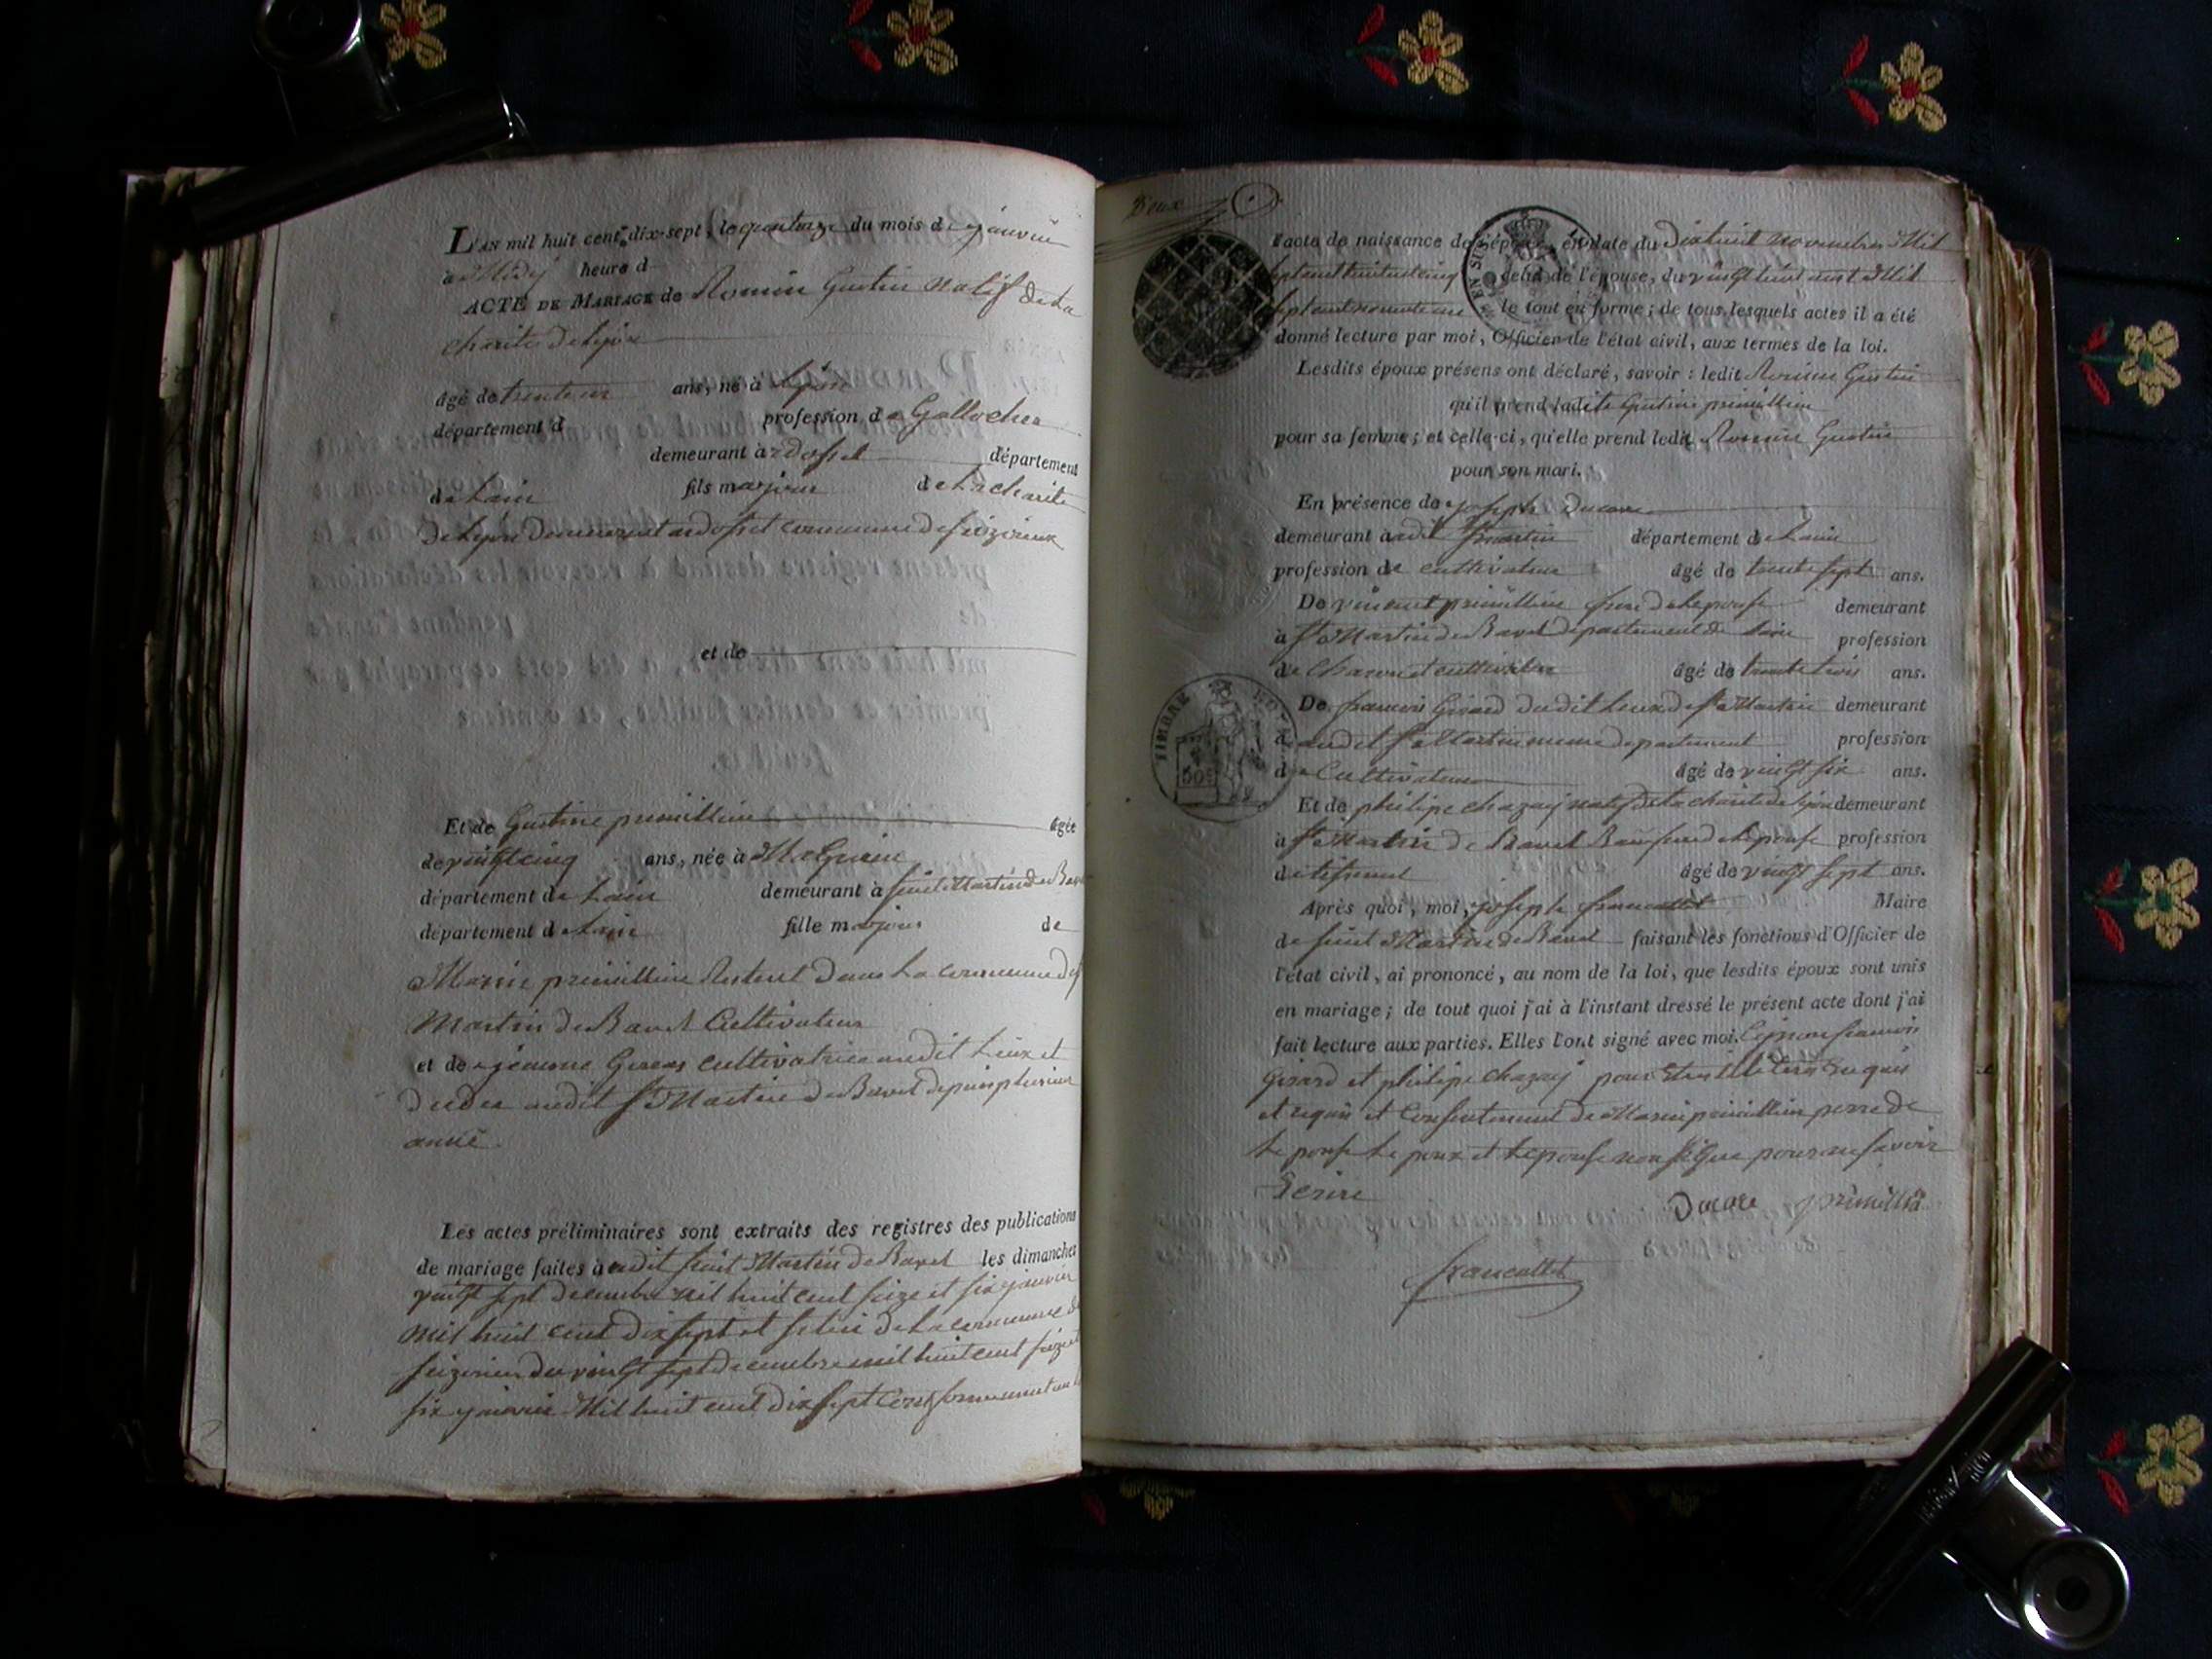 L'AN mil huit cent dix-sept, le quatorze du mois de janvier
à Midy heure d
ACTE DE MARIAGE de Romain Gustin natif de La
charité de Lyon
âgé de trente un ans, né à Lyon
département d profession de Gallocher
demeurant à dosset département
de Lain fils majeur de La charité
de Lyon demeurant a dosset commune de
et de
Et de Gustine premillieu âgée
de vingt cinq ans, née à
département de Lain demeurant à saint Martin de Bavel
département de Lain fille majeur de
Marin premillieu Restent Dans La commune de St
Martin de Bavel Cultivateur
et de jeanne cultivatrice audit Lieux et
audit St Martin de Bavel depuis plusieur
année
Les actes préliminaires sont extraits des registres des publications
de mariage faites à audit saint Martin de Bavel les dimanches
vingt sept decembre mil huit cent seize et six janvier
mil huit cent dix sept et selui de La commune de
du vingt sept decembre mil huit cent seize et
six janvier Mil huit cent dix sept Conformement
Deux
l'acte de naissance de l'époux, en date du dixhuit novembre Mil
sept cent huitante cinq celui de l'épouse, du vingt huit aout Mil
sept cent nonante un le tout en forme ; de tous lesquels actes il a été
donné lecture par moi, Officier de l'état civil, aux termes de la loi.
Lesdits époux présens ont déclaré, savoir : ledit Romain Gustin
qu'il prend ladite Gustine premillieu
pour sa femme ; et celle-ci, qu'elle prend ledit Romain Gustin
pour son mari.
En présence de joseph Ducare
demeurant à udit St martin département de Lain
profession de cultivateur âgé de trente sept ans.
De vincent premillieu frere de Lepouse demeurant
à St Martin de Bavel departement de Lain profession
de Charon et cultivateur âgé de trente trois ans.
De francois Girard dudit Lieux de St Martin demeurant
à audit St Martin meme departement profession
de Cultivateur âgé de vingt six ans.
Et de philipe chazay natif de La charité de Lyon demeurant
à St Martin de Bavel Baufrere de Lepouse profession
de tisserent âgé de vingt sept ans.
Après quoi, moi, joseph francallet Maire
de saint Martin de Bavel faisant les fonctions d'Officier de
l'état civil, ai prononcé, au nom de la loi, que lesdits époux sont unis
en mariage ; de tout quoi j'ai à l'instant dressé le présent acte dont j'ai
fait lecture aux parties. Elles l'ont signé avec moi. francois
Girard et philipe Chazay pour
et Consentement de Marin premillieu perre de
Lepouse Le poux et Lepouse non signe pour ne savoir
Ecrire
Ducare premillieu
francallet
TIMBRE ROYAL
50c
EN SUS